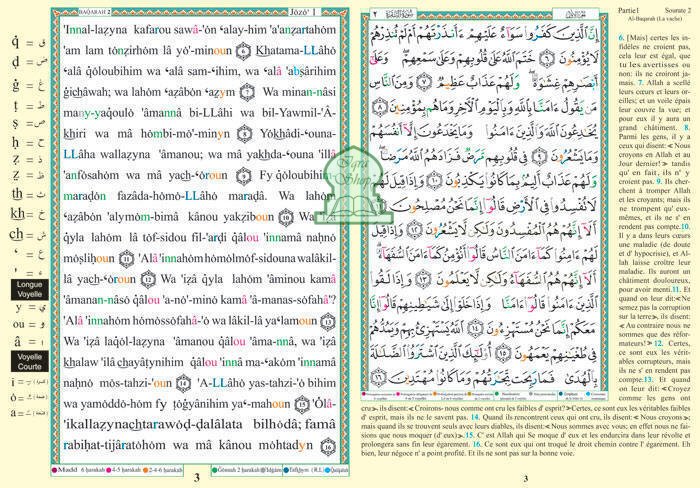 BAQARAH 2
Jōzô' 1
q̇ = ق
ḍ = ض
ġ = غ
ṭ = ط
ṣ = ص
ḥ = ح
z̧ = ظ
th = ث
kh = خ
ch = ش
‘ = ع
' = ء
Longue
Voyelle
y = ي
ou = و
â = ا
Voyelle
Courte
i =
ô =
a =
'Innal-lazyna kafarou sawâ-'ôn
'am lam tônzirhôm lâ yô'-minoun 6 Khatama-LLâhô
wa lahôm
many-yaqoulô 'âmannâ bi-LLâhi wa bil-Yawmil-'Â-
khiri wa mâ hômbi-mô'-minyn 8
LLâha wallazyna 'âmanou; wa mâ yakhda-‘ouna 'illâ
'anfôsahôm wa mâ yach-‘ôroun 9
fazâda-hômôl-LLâhô maradâ. Wa lahôm
‘azâbôn 'alymôm-bimâ kânou yakziboun 10
qyla lahôm lâ tôf-sidou fil-'ardi qâlou 'innamâ naḥnô
môsliḥoun 11
qyla lahôm 'âminou kamâ
'âmanan-nâsô qâlou 'a-nô'-minô kamâ 'â-manas-sôfahâ'?
Wa 'izâ laqôl-lazyna 'âmanou qâlou 'âma-nnâ, wa 'izâ
khalaw 'ilâ chayâtynihim qâlou 'innâ ma-‘akôm 'innamâ
naḥnô môs-tahzi-'oun 14 'A-LLâhô yas-tahzi-'ô bihim
wa yamôddô-hôm fy tôġyânihim ya‘-mahoun 15 'Ôlâ-
rabiḥat-tijâratôhôm wa mâ kânou môhtadyn 16
Iqra
Shop
3
إِنَّ ٱلَّذِينَ كَفَرُوا۟ سَوَآءٌ عَلَيْهِمْ ءَأَنذَرْتَهُمْ أَمْ لَمْ تُنذِرْهُمْ
لَا يُؤْمِنُونَ ٦ خَتَمَ ٱللَّهُ عَلَىٰ قُلُوبِهِمْ وَعَلَىٰ سَمْعِهِمْ ۖ وَعَلَىٰٓ
أَبْصَٰرِهِمْ غِشَٰوَةٌ ۖ وَلَهُمْ عَذَابٌ عَظِيمٌ ٧ وَمِنَ ٱلنَّاسِ
مَن يَقُولُ ءَامَنَّا بِٱللَّهِ وَبِٱلْيَوْمِ ٱلْءَاخِرِ وَمَا هُم بِمُؤْمِنِينَ ٨
يُخَٰدِعُونَ ٱللَّهَ وَٱلَّذِينَ ءَامَنُوا۟ وَمَا يَخْدَعُونَ إِلَّآ أَنفُسَهُمْ
وَمَا يَشْعُرُونَ ٩ فِى قُلُوبِهِم مَّرَضٌ فَزَادَهُمُ ٱللَّهُ مَرَضًا ۖ
وَلَهُمْ عَذَابٌ أَلِيمٌۢ بِمَا كَانُوا۟ يَكْذِبُونَ ١٠ وَإِذَا قِيلَ لَهُمْ
لَا تُفْسِدُوا۟ فِى ٱلْأَرْضِ قَالُوٓا۟ إِنَّمَا نَحْنُ مُصْلِحُونَ ١١
أَلَآ إِنَّهُمْ هُمُ ٱلْمُفْسِدُونَ وَلَٰكِن لَّا يَشْعُرُونَ ١٢ وَإِذَا قِيلَ
لَهُمْ ءَامِنُوا۟ كَمَآ ءَامَنَ ٱلنَّاسُ قَالُوٓا۟ أَنُؤْمِنُ كَمَآ ءَامَنَ ٱلسُّفَهَآءُ ۗ
أَلَآ إِنَّهُمْ هُمُ ٱلسُّفَهَآءُ وَلَٰكِن لَّا يَعْلَمُونَ ١٣ وَإِذَا لَقُوا۟
ٱلَّذِينَ ءَامَنُوا۟ قَالُوٓا۟ ءَامَنَّا وَإِذَا خَلَوْا۟ إِلَىٰ شَيَٰطِينِهِمْ قَالُوٓا۟ إِنَّا
مَعَكُمْ إِنَّمَا نَحْنُ مُسْتَهْزِءُونَ ١٤ ٱللَّهُ يَسْتَهْزِئُ بِهِمْ وَيَمُدُّهُمْ
فِى طُغْيَٰنِهِمْ يَعْمَهُونَ ١٥ أُو۟لَٰٓئِكَ ٱلَّذِينَ ٱشْتَرَوُا۟ ٱلضَّلَٰلَةَ
بِٱلْهُدَىٰ فَمَا رَبِحَت تِّجَٰرَتُهُمْ وَمَا كَانُوا۟ مُهْتَدِينَ ١٦
Partie1 Sourate 2
Al-Baqarah (La vache)
6. [Mais] certes les in-
fidèles ne croient pas,
cela leur est égal, que
tu les avertisses ou
non: ils ne croiront ja-
mais. 7. Allah a scellé
leurs cœurs et leurs or-
eilles; et un voile épais
leur couvre la vue; et
pour eux il y aura un
grand châtiment. 8.
Parmi les gens, il y a
ceux qui disent: «Nous
croyons en Allah et au
Jour dernier!» tandis
qu' en fait, ils n' y
croient pas. 9. Ils cher-
chent à tromper Allah
et les croyants; mais ils
ne trompent qu' eux-
mêmes, et ils ne s' en
rendent pas compte.10.
Il y a dans leurs cœurs
une maladie (de doute
et d' hypocrisie), et Al-
lah laisse croître leur
maladie. Ils auront un
châtiment douloureux,
pour avoir menti.11. Et
quand on leur dit:«Ne
semez pas la corruption
sur la terre», ils disent:
«Au contraire nous ne
sommes que des réfor-
mateurs!» 12. Certes,
ce sont eux les véri-
tables corrupteurs, mais
ils ne s' en rendent pas
compte.13. Et quand
on leur dit:«Croyez
comme les gens ont
cru», ils disent:«Croirons-nous comme ont cru les faibles d' esprit?»Certes, ce sont eux les véritables faibles
d' esprit, mais ils ne le savent pas. 14. Quand ils rencontrent ceux qui ont cru, ils disent:«Nous croyons»;
mais quand ils se trouvent seuls avec leurs diables, ils disent:«Nous sommes avec vous; en effet nous ne fai-
sions que nous moquer (d' eux)».15. C' est Allah qui Se moque d' eux et les endurcira dans leur révolte et
prolongera sans fin leur égarement. 16. Ce sont eux qui ont troqué le droit chemin contre l' égarement. Eh
bien, leur négoce n' a point profité. Et ils ne sont pas sur la bonne voie.
3